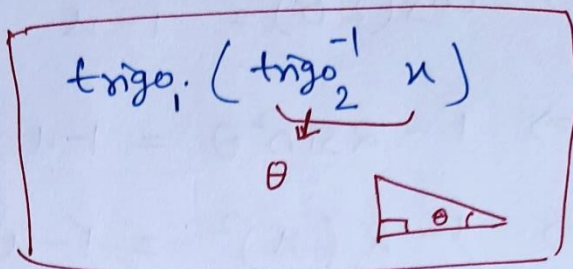 trigo₁ . ( trigo₂⁻¹ x )
θ
θ